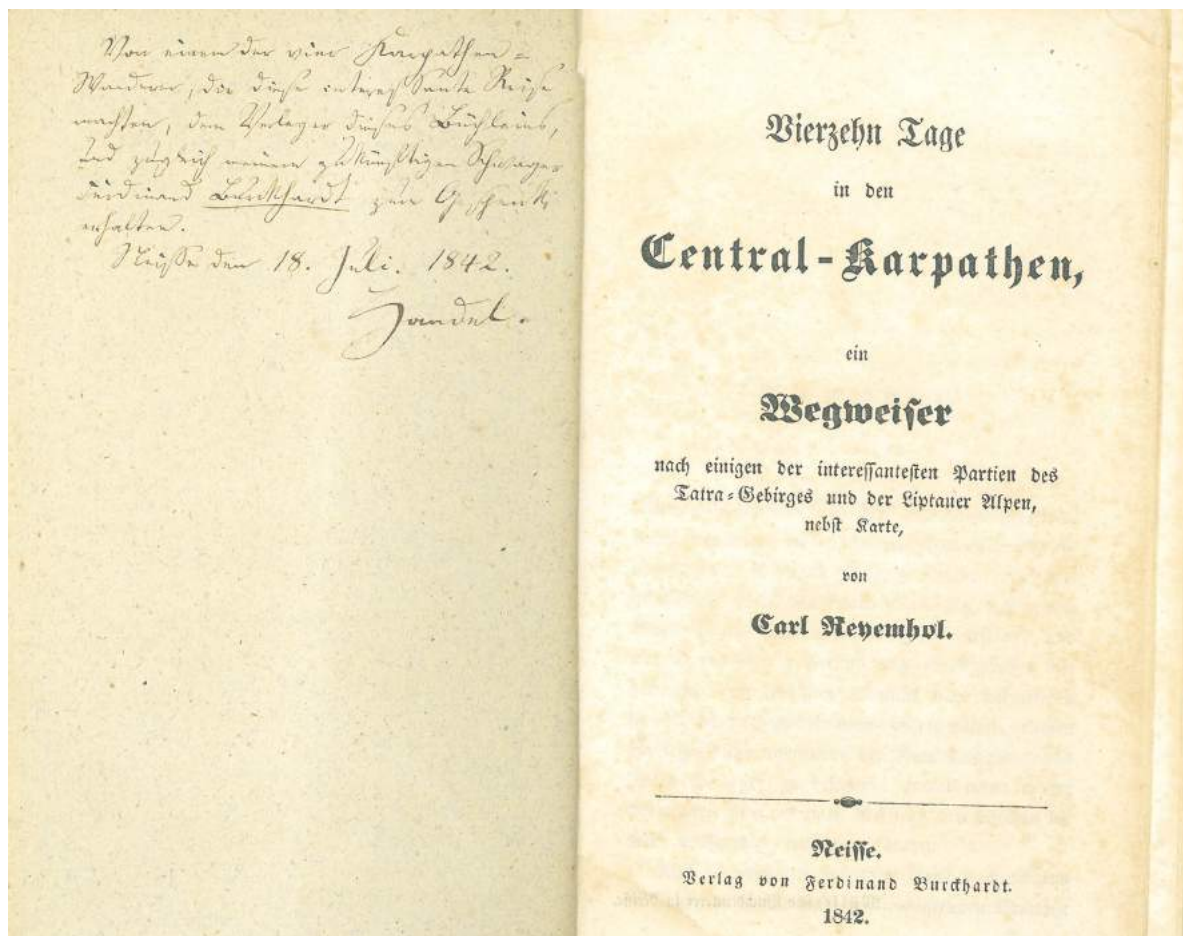 Von einem der vier Karpathen-
Wanderer, die diese interessante Reise
machten, dem Verleger dieses Büchleins,
und zugleich meinem zukünftigen Schwager
Ferdinand Burckhardt zum Geschenk
erhalten.
Neisse den 18. Juli. 1842.
Handel.
Vierzehn Tage
in den
Central-Karpathen,
ein
Wegweiser
nach einigen der interessantesten Partien des
Tatra-Gebirges und der Liptauer Alpen,
nebst Karte,
von
Carl Reyemhol.
Neisse.
Verlag von Ferdinand Burckhardt.
1842.